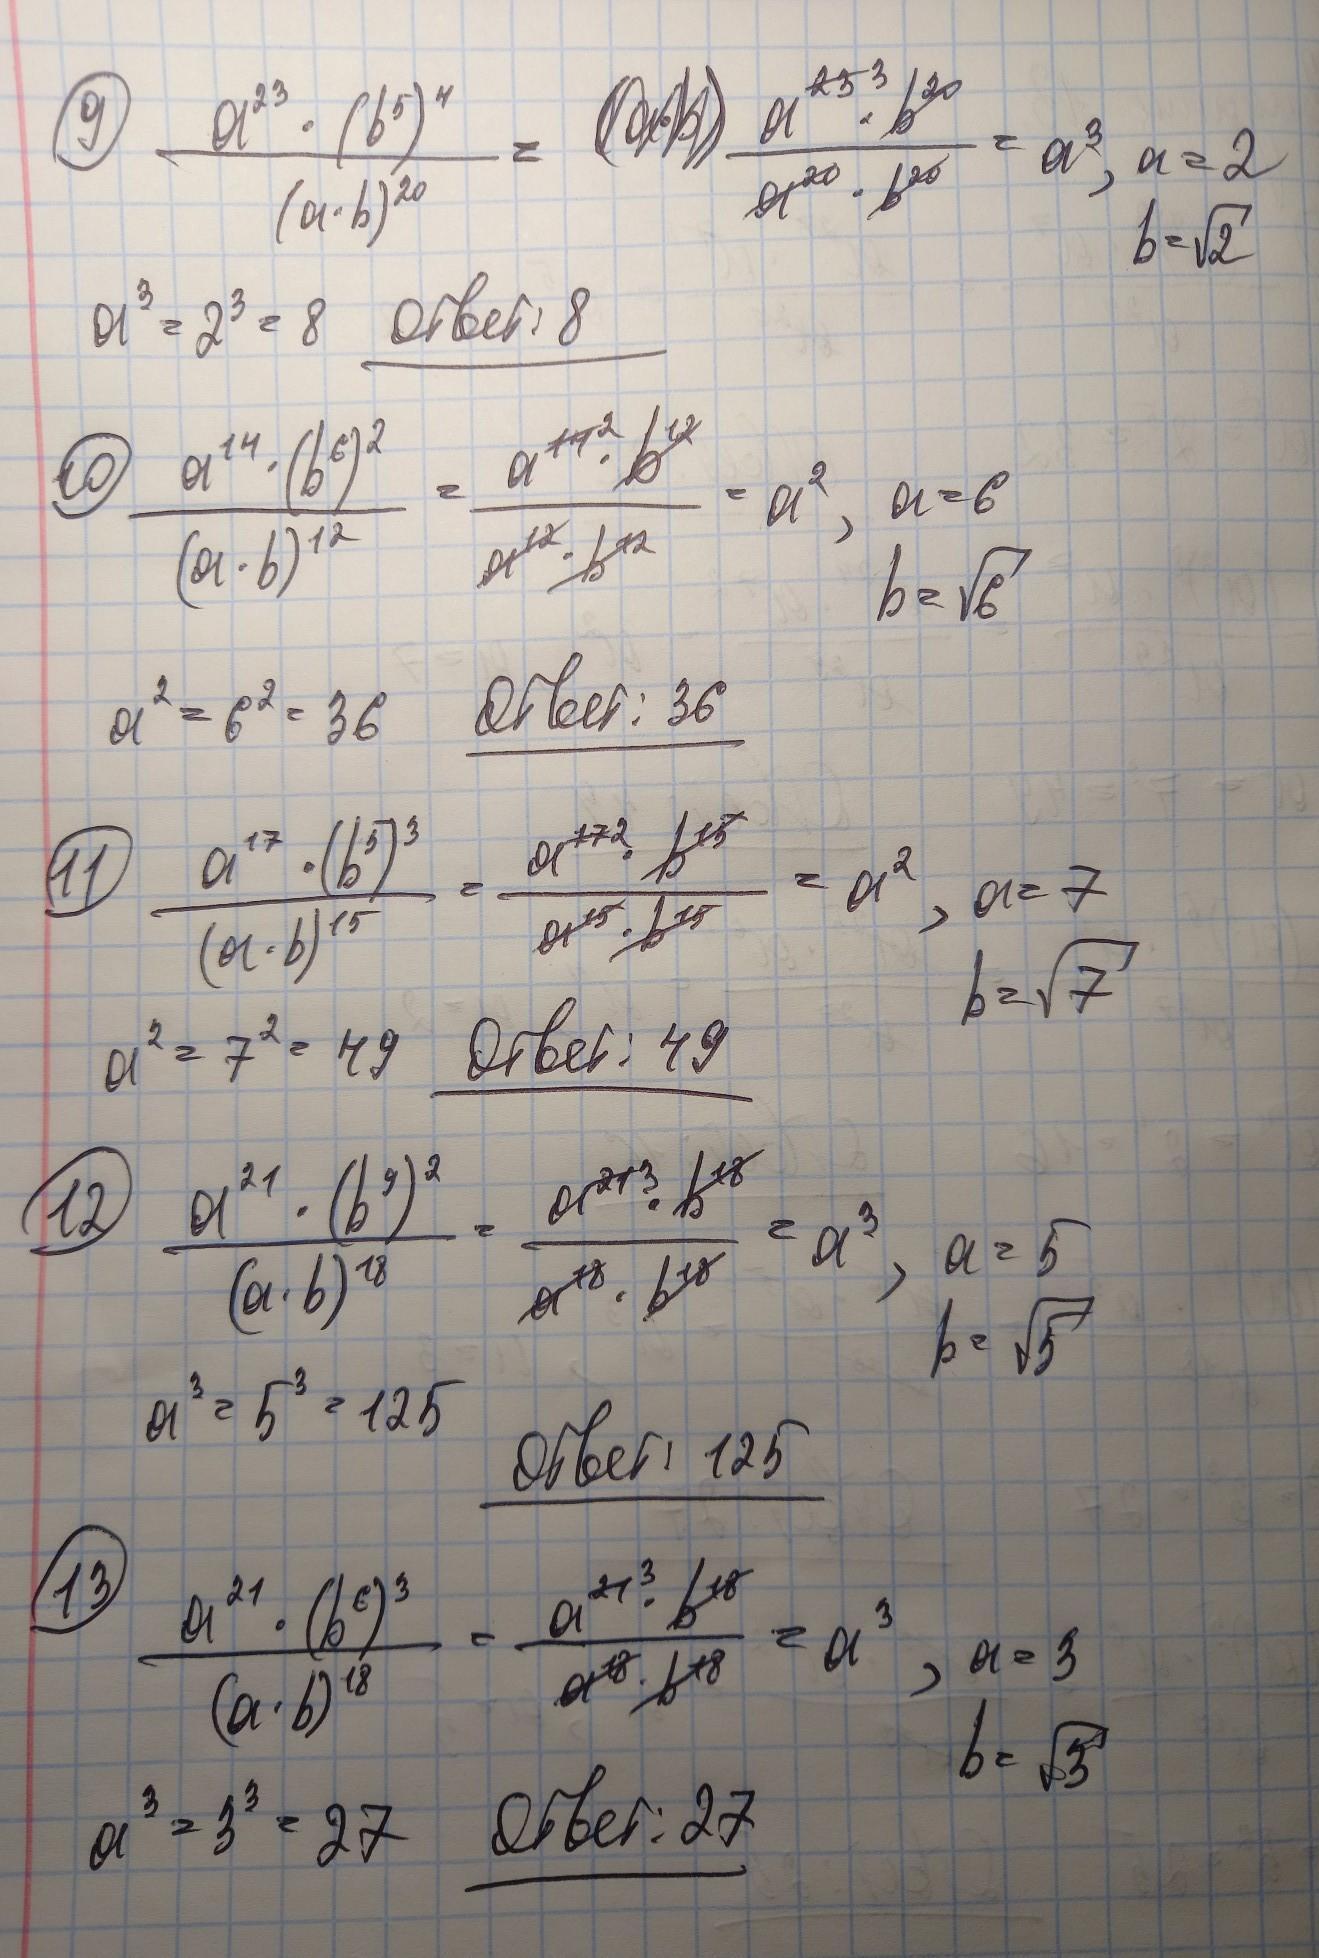 9 (a^23 · (b^5)^4)/((a·b)^20) = (a^23 3 · b^20)/(a^20 · b^20) = a^3, a = 2
b = √2
a^3 = 2^3 = 8 Ответ: 8
10 (a^14 · (b^6)^2)/((a·b)^12) = (a^14 2 · b^12)/(a^12 · b^12) = a^2, a = 6
b = √6
a^2 = 6^2 = 36 Ответ: 36
11 (a^17 · (b^5)^3)/((a·b)^15) = (a^17 2 · b^15)/(a^15 · b^15) = a^2, a = 7
b = √7
a^2 = 7^2 = 49 Ответ: 49
12 (a^21 · (b^9)^2)/((a·b)^18) = (a^21 3 · b^18)/(a^18 · b^18) = a^3, a = 5
b = √5
a^3 = 5^3 = 125
Ответ: 125
13 (a^21 · (b^6)^3)/((a·b)^18) = (a^21 3 · b^18)/(a^18 · b^18) = a^3, a = 3
b = √3
a^3 = 3^3 = 27 Ответ: 27